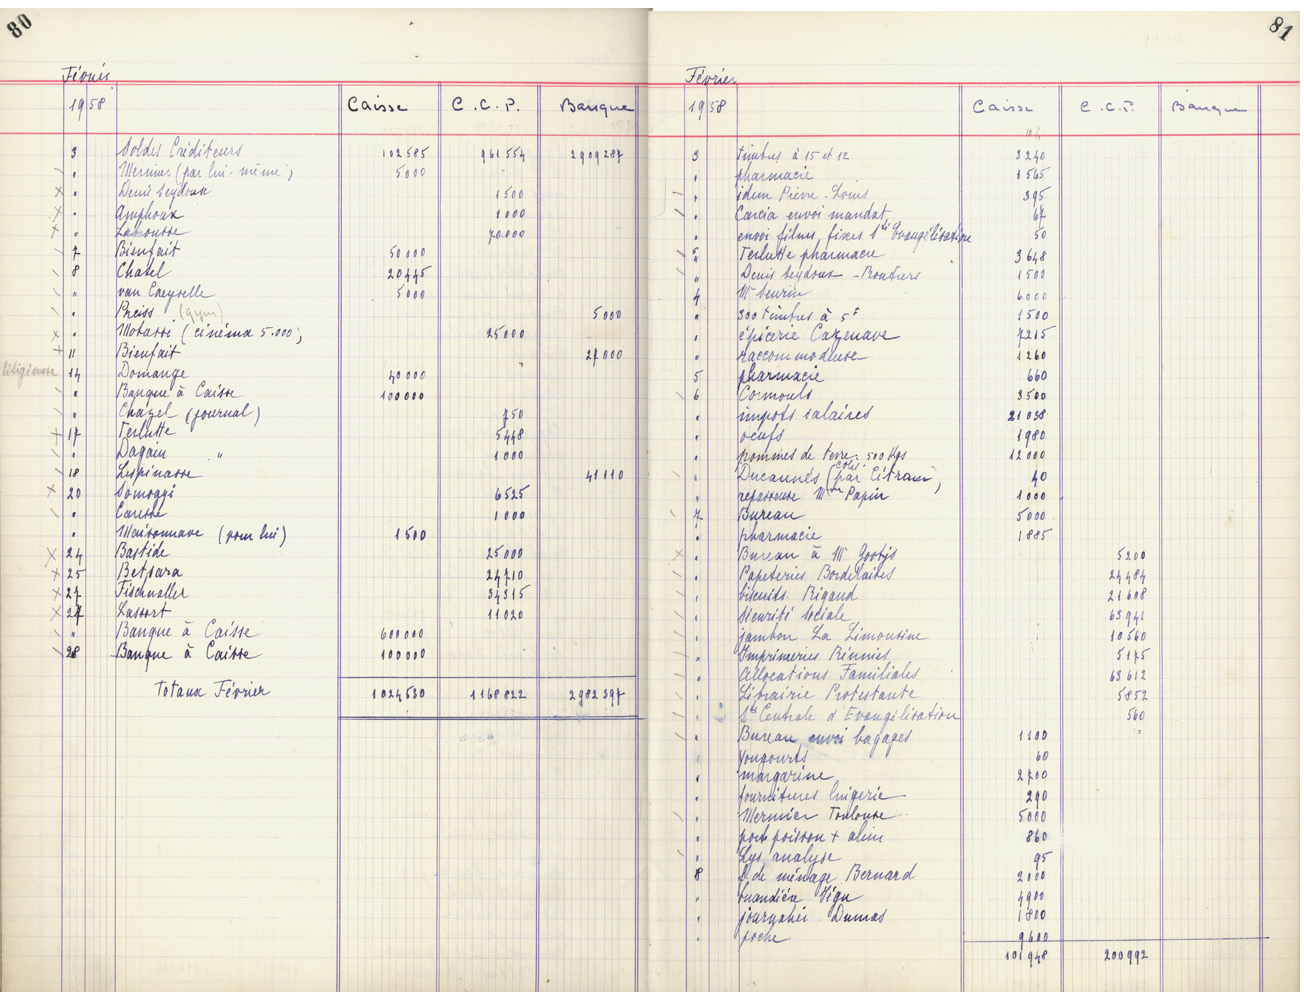 80
Février
1958 Caisse C.C.P. Banque
3 Soldes Créditeurs 102585 961554 2909287
" Mernier (par lui-même) 5000
" Denis Seydoux 1500
" Amphoux 1000
" Labousse 70.000
7 Bienfait 50000
8 Chatel 20445
" van Caeyselle 5000
" Preiss (gym) 5000
" Motassi (cinéma 5.000) 25000
11 Bienfait 27000
litigieuse 14 Domange 40000
" Banque à Caisse 100000
" Chazel (journal) 750
17 Terlutte 5448
" Dagain " 1000
18 Lespinasse 41110
20 Somogyi 6525
" Caresse 1000
" Maisonnave (pour lui) 1500
24 Bastide 25000
25 Betsara 24710
27 Fischnaller 34315
27 Lassort 11020
" Banque à Caisse 600000
28 Banque à Caisse 100000
Totaux Février 1024530 1168822 2982397
81
Février
1958 Caisse C.C.P. Banque
3 timbres à 15 et 12 3240
" pharmacie 1565
" idem Pierre-Louis 395
" Garcia envoi mandat 67
" envoi films fixes Sté Evangélisation 50
5 Terlutte pharmacie 3648
" Denis Seydoux - Routiers 1500
4 Mr Seurin 6000
" 300 timbres à 5f 1500
" épicerie Cazenave 7215
" raccommodeuse 1260
5 pharmacie 660
6 Cormouls 3500
" impots salaires 21038
" oeufs 1980
" pommes de terre 500 Kgs 12000
" Ducannés (colis par Citram) 40
" repasseuse Mme Papin 1000
7 Bureau 5000
" pharmacie 1885
" Bureau à Mr Gootjs 5200
" Papeteries Bordelaises 24484
" biscuits Rigaud 21608
" Sécurité Sociale 63941
" jambon La Limousine 10560
" Imprimeries Réunies 5175
" Allocations Familiales 63612
" Librairie Protestante 5852
" Sté Centrale d'Evangélisation 560
" Bureau envoi bagages 1100
" Yougourts 60
" margarine 2700
" fournitures lingerie 290
" Mernier Toulouse 5000
" port poisson + alim 860
" Lys analyse 95
8 f. de ménage Bernard 2000
" buandière Vign 4900
" journalier Dumas 1800
" poche 9600
101948 200992